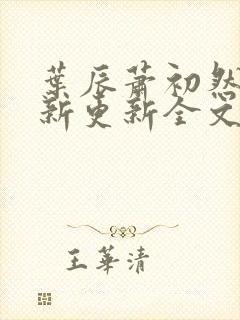 葉辰蕭初然
新更新全文
王華清